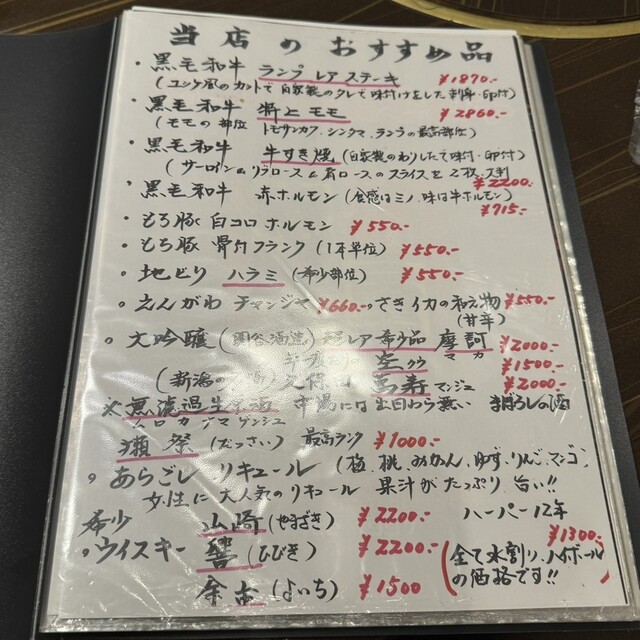 当店のおすすめ品
・黒毛和牛 ランプレアステーキ ¥1870.-
(ユッケ風のカットで自家製のタレで味付けをした刺身・卵付)
・黒毛和牛 特上モモ ¥2860.-
(モモの部位 トモサンカク、シンタマ、ランプの最高部位)
・黒毛和牛 牛すき焼 (自家製のわりしたで味付・卵付)
(サーロイン、リブロース、肩ロースのスライスを2枚、大判 ¥2200.-
・黒毛和牛 赤ホルモン (食感はミノ、味は牛ホルモン) ¥715.-
・もち豚 白コロホルモン ¥550.-
・もち豚 骨付フランク (1本単位) ¥550.-
・地どり ハラミ (希少部位) ¥550.-
・えんがわ チャンジャ ¥660.- 。さきイカの和え物 ¥550.-
(甘辛)
・大吟醸 (関谷酒造) 超レア希少品 摩訶 ¥2000.-
マカ
空 クウ ¥1500.-
(新潟の) 久保田 萬寿 マンジュ ¥2000.-
※無濾過生原酒 市場には出回わら無い まぼろしの酒
ムロカナマゲンシュ
獺祭 (だっさい) 最高ランク ¥1000.-
。あらごし リキュール (梅、桃、みかん、ゆず、りんご、マンゴ)
女性に大人気のリキュール 果汁がたっぷり、旨い!!
希少 山崎 (やまざき) ¥2200.- ハーパー12年
。ウイスキー 響 (ひびき) ¥2200.- ¥1300.-
(全て水割り、ハイボールの価格です!!)
余市 (よいち) ¥1500